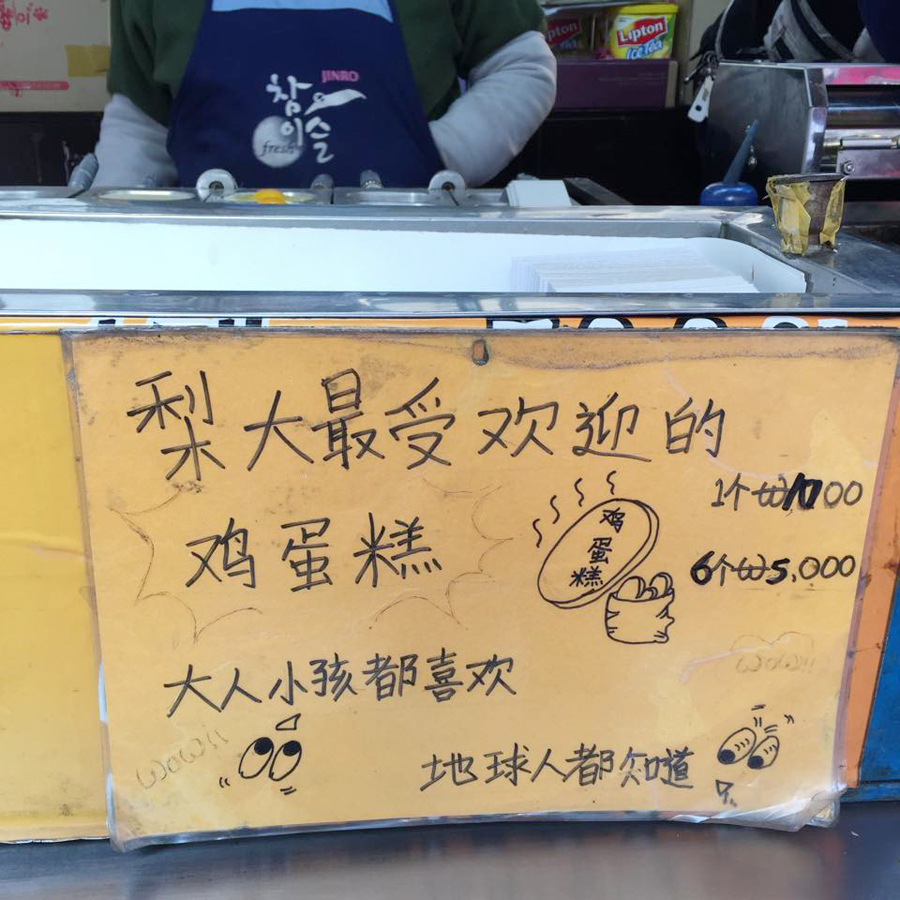 JINRO
참이슬
fresh
Lipton
Ice Tea
梨大最受欢迎的
鸡蛋糕
鸡蛋糕
1个₩1000
6个₩5,000
大人小孩都喜欢
wow!!
wow!!
地球人都知道